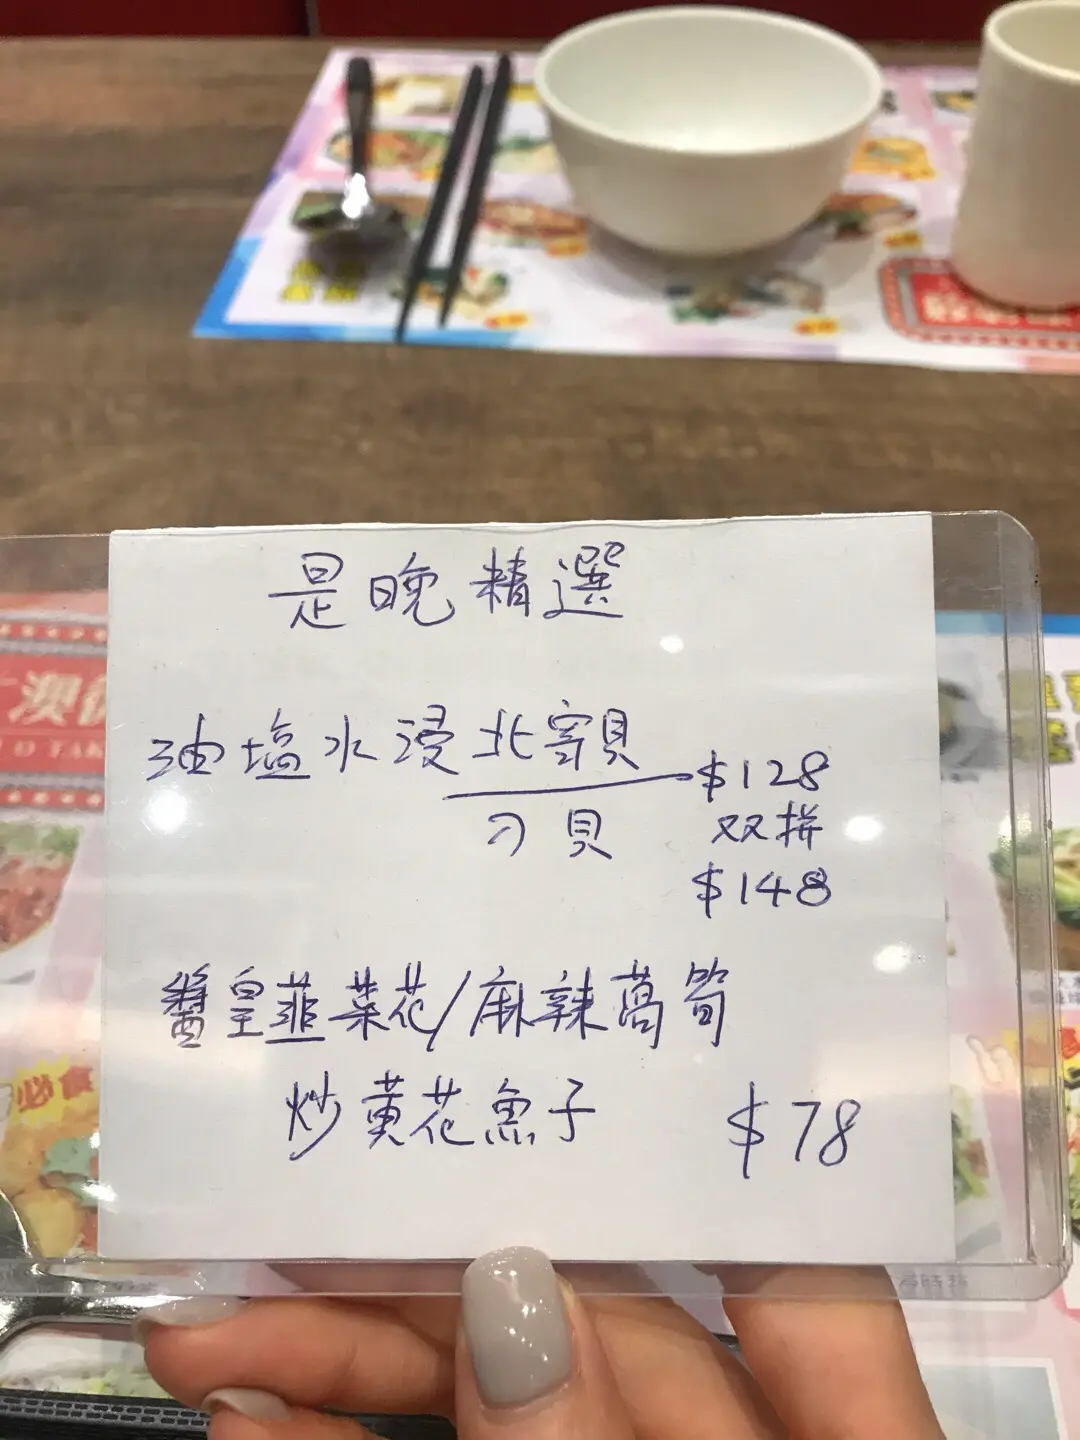 是晚精選
油塩水浸北寄貝
刁貝
$128
双拼
$148
醬皇韮菜花/麻辣萵筍
炒黄花魚子 $78
必食